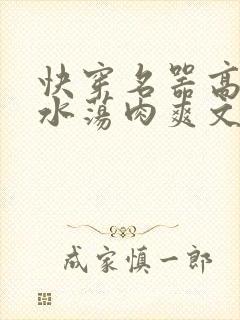 快穿名器高
水荡肉爽文
成家慎一郎